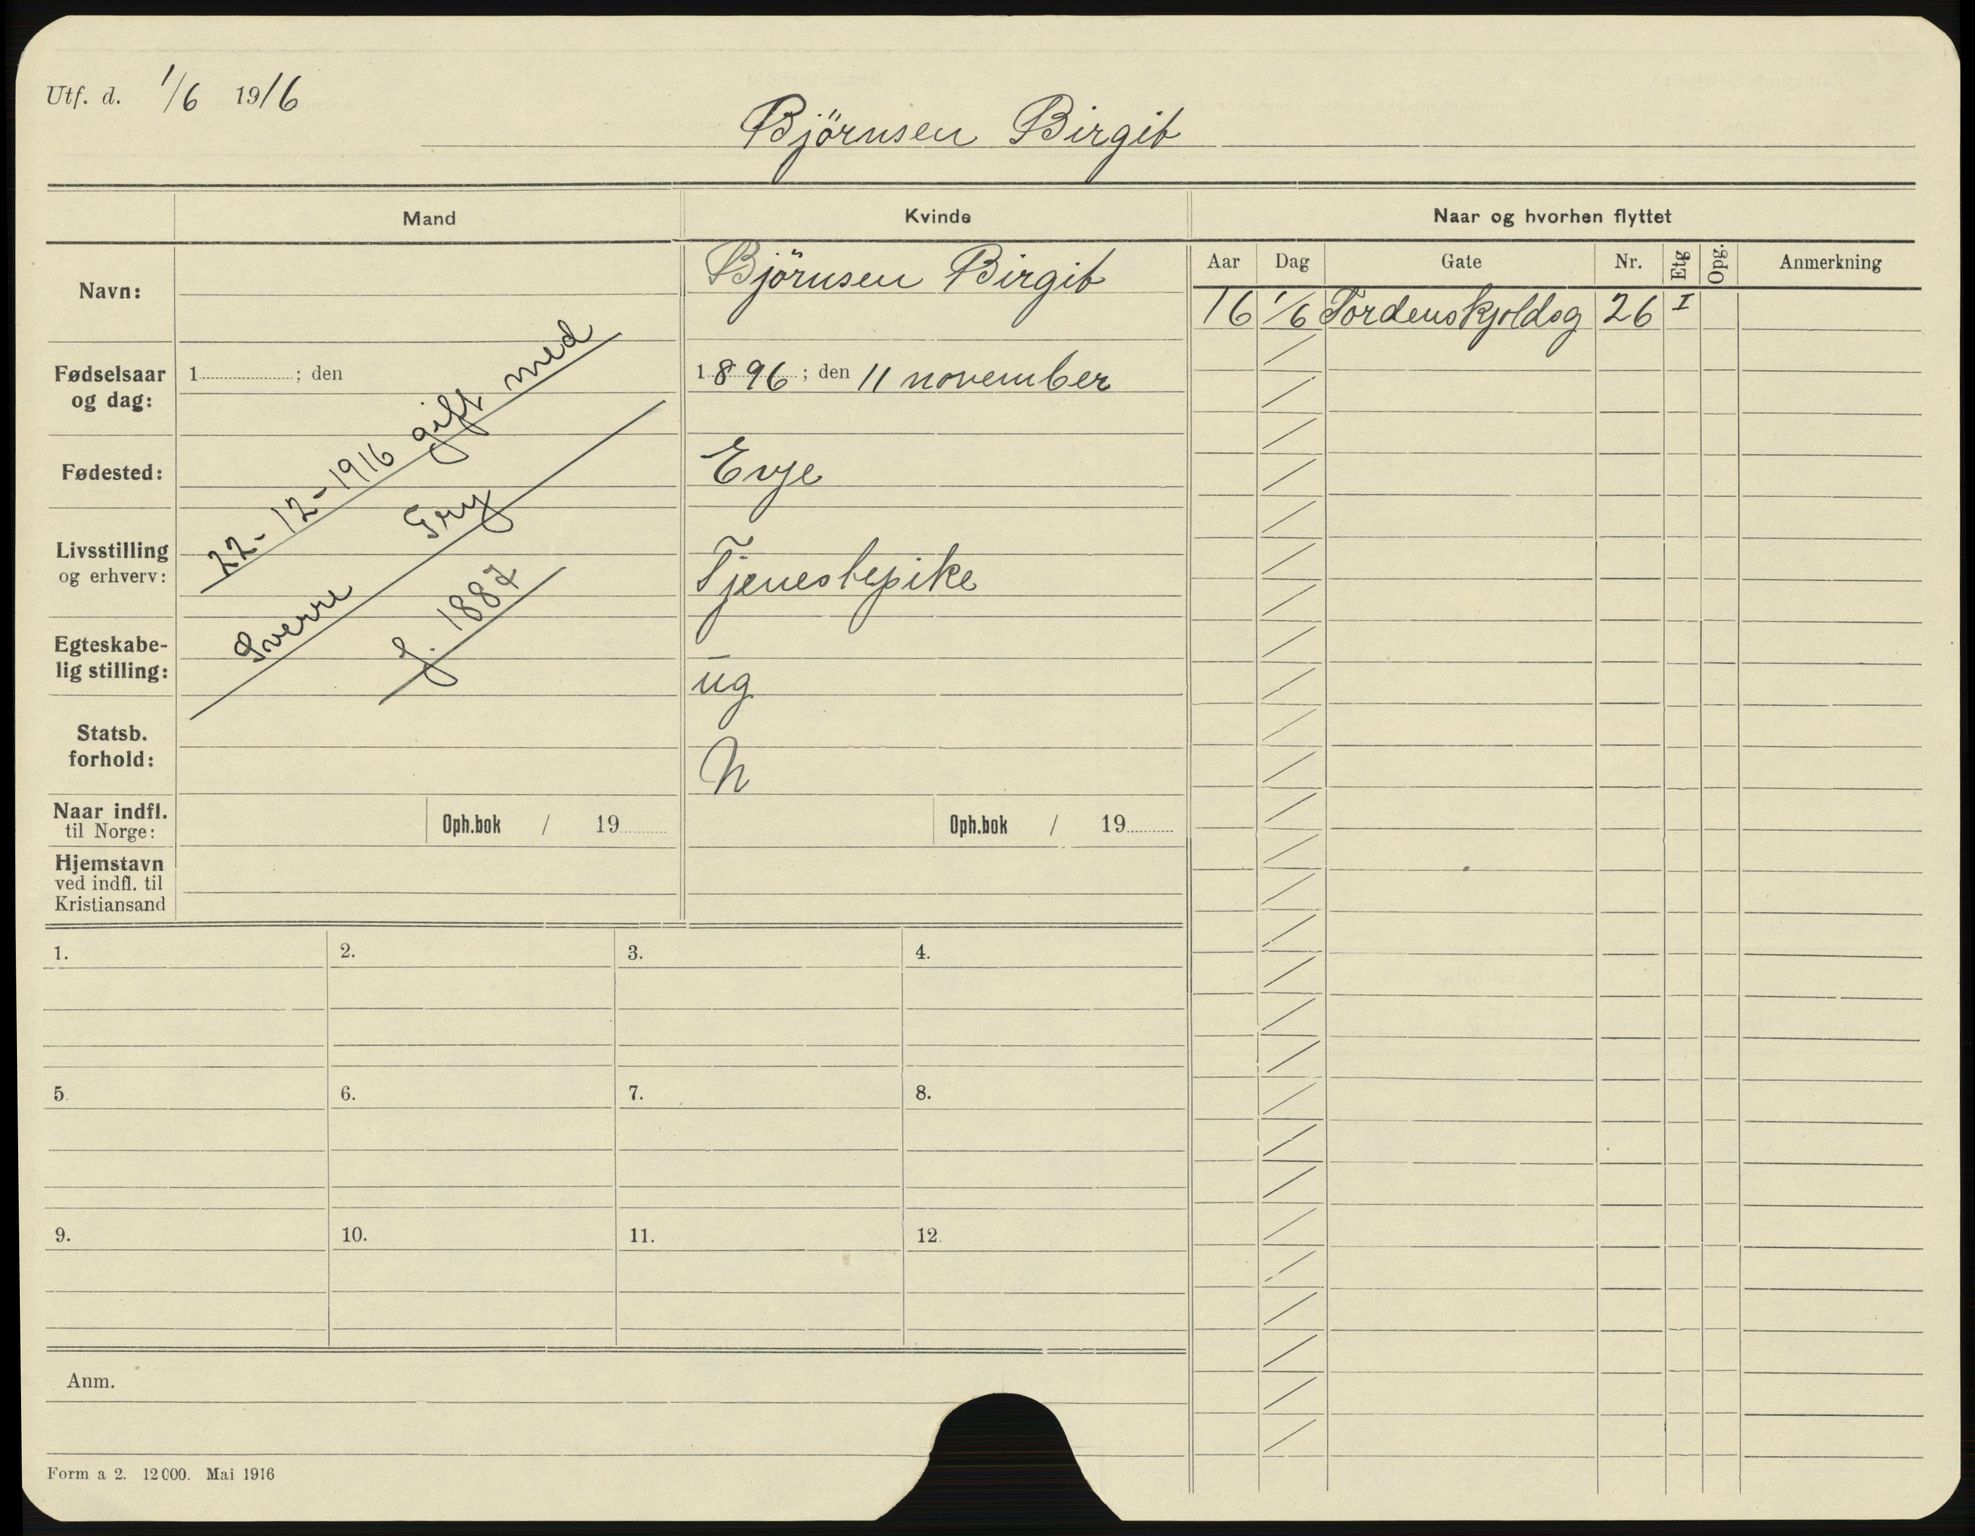 Utf. d. 1/6 1916
Björnsen Birgit
Mand
Kvinde
Naar og hvorhen flyttet
Aar Dag Gate Nr. Etg Opg. Anmerkning
16 1/6 Tordenskjoldsg 26 I
Navn:
Björnsen Birgit
Fødselsaar
og dag:
1 ; den
1896 ; den 11 november
Fødested:
Evje
Livsstilling
og erhverv:
Tjenestepike
Egteskabe-
lig stilling:
ug
Statsb.
forhold:
N
22-12-1916 gift med
Sverre Gry
f. 1887
Naar indfl.
til Norge:
Oph.bok / 19
Oph.bok / 19
Hjemstavn
ved indfl. til
Kristiansand
1. 2. 3. 4.
5. 6. 7. 8.
9. 10. 11. 12.
Anm.
Form a 2. 12000. Mai 1916